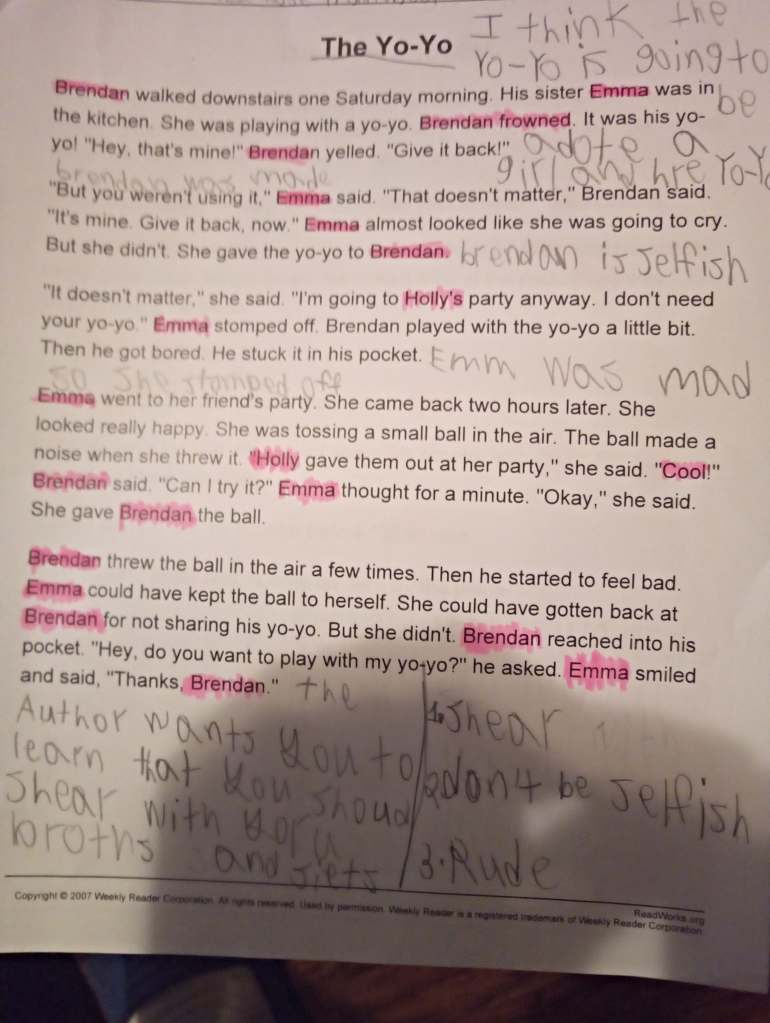 The Yo-Yo
I think the
Yo-Yo is going to
be
adote a
girl and hre Yo-Yo
Brendan walked downstairs one Saturday morning. His sister Emma was in
the kitchen. She was playing with a yo-yo. Brendan frowned. It was his yo-
yo! "Hey, that's mine!" Brendan yelled. "Give it back!"
brendan was made
"But you weren't using it," Emma said. "That doesn't matter," Brendan said.
"It's mine. Give it back, now." Emma almost looked like she was going to cry.
But she didn't. She gave the yo-yo to Brendan.
brendan is selfish
"It doesn't matter," she said. "I'm going to Holly's party anyway. I don't need
your yo-yo." Emma stomped off. Brendan played with the yo-yo a little bit.
Then he got bored. He stuck it in his pocket.
Emm was mad
so she stomped off
Emma went to her friend's party. She came back two hours later. She
looked really happy. She was tossing a small ball in the air. The ball made a
noise when she threw it. "Holly gave them out at her party," she said. "Cool!"
Brendan said. "Can I try it?" Emma thought for a minute. "Okay," she said.
She gave Brendan the ball.
Brendan threw the ball in the air a few times. Then he started to feel bad.
Emma could have kept the ball to herself. She could have gotten back at
Brendan for not sharing his yo-yo. But she didn't. Brendan reached into his
pocket. "Hey, do you want to play with my yo-yo?" he asked. Emma smiled
and said, "Thanks, Brendan."
the
Author wants you to
learn that you shoud
shear with yoru
broths and siets
1. shear
2 don't be selfish
3. Rude
Copyright © 2007 Weekly Reader Corporation. All rights reserved. Used by permission. Weekly Reader is a registered trademark of Weekly Reader Corporation.
ReadWorks.org